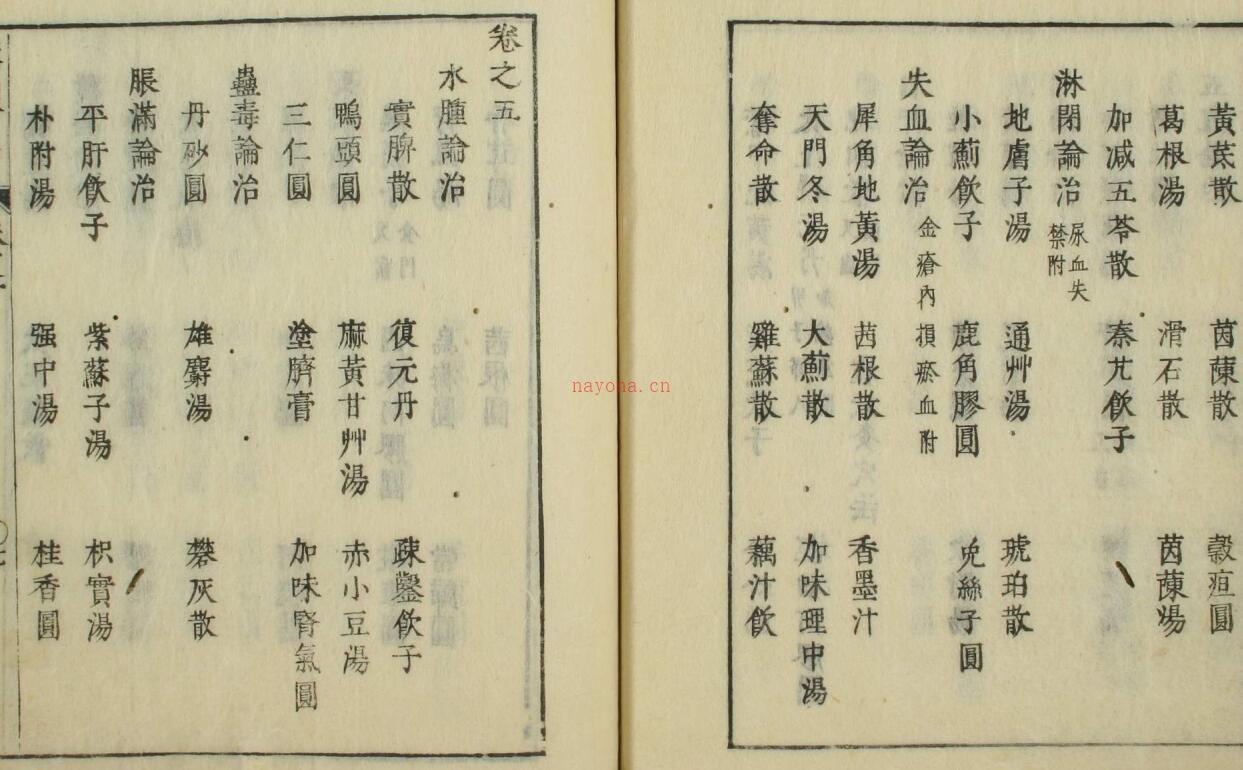 黃芪散 茵蔯散 穀疸圓
葛根湯 滑石散 茵蔯湯
加减五苓散 秦艽飲子
淋閉論治 尿血失禁附
地膚子湯 通艸湯 琥珀散
小薊飲子 鹿角膠圓 兔絲子圓
失血論治 金瘡內損瘀血附
犀角地黃湯 茜根散 香墨汁
天門冬湯 大薊散 加味理中湯
奪命散 雞蘇散 藕汁飲
卷之五
水腫論治
實脾散 復元丹 疎鑿飲子
鴨頭圓 麻黃甘艸湯 赤小豆湯
三仁圓 塗臍膏 加味腎氣圓
蠱毒論治
丹砂圓 雄麝湯 礬灰散
脹滿論治
平肝飲子 紫蘇子湯 枳實湯
朴附湯 强中湯 桂香圓
nayona.cn